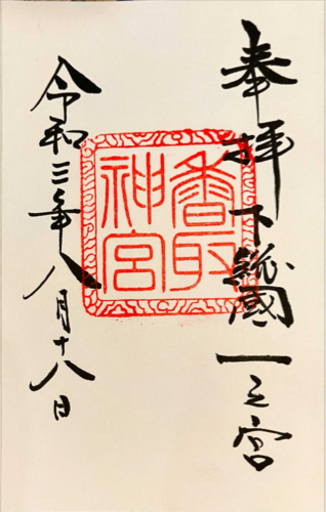 奉拝 下総國一之宮
香取神宮
令和三年八月十八日